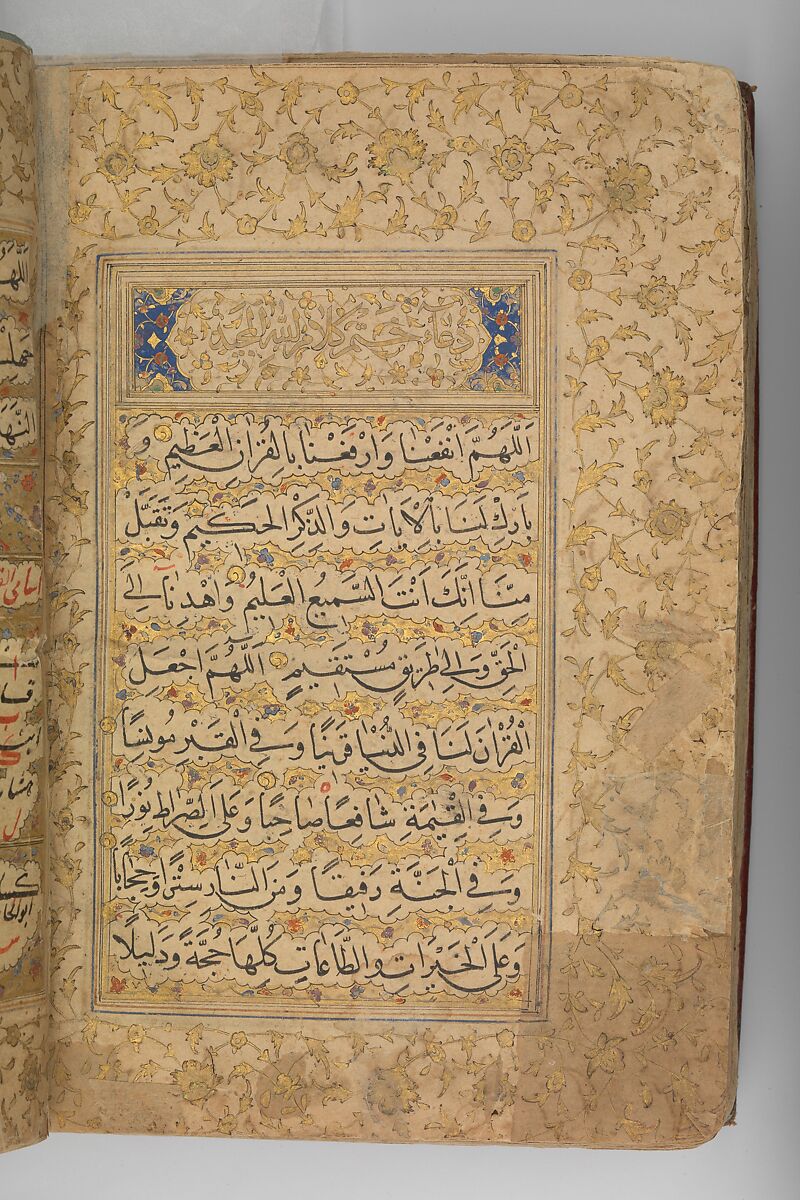 دعاء ختم كلام الله المجيد
اَللّٰهُمَّ انْفَعْنَا وَارْفَعْنَا بِالْقُرْاٰنِ الْعَظِيمِ وَ
بَارِكْ لَنَا بِالْاٰيَاتِ وَالذِّكْرِ الْحَكِيمِ وَتَقَبَّلْ
مِنَّا اِنَّكَ اَنْتَ السَّمِيعُ الْعَلِيمُ وَاهْدِنَا اِلَى
الْحَقِّ وَاِلٰى طَرِيقٍ مُسْتَقِيمٍ اَللّٰهُمَّ اجْعَلِ
الْقُرْاٰنَ لَنَا فِي الدُّنْيَا قَرِينًا وَفِي الْقَبْرِ مُونِسًا
وَفِي الْقِيٰمَةِ شَافِعًا صَاحِبًا وَعَلَى الصِّرَاطِ نُورًا
وَفِي الْجَنَّةِ رَفِيقًا وَمِنَ النَّارِ سِتْرًا وَحِجَابًا
وَعَلَى الْخَيْرَاتِ وَالطَّاعَاتِ كُلِّهَا حُجَّةً وَدَلِيلًا